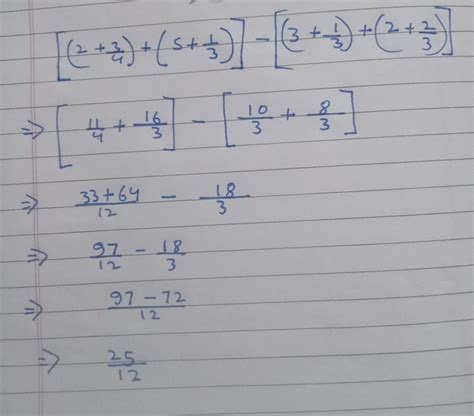 [(2 + 3/4) + (5 + 1/3)] - [(3 + 1/3) + (2 + 2/3)]
⇒ [11/4 + 16/3] - [10/3 + 8/3]
⇒ 33+64/12 - 18/3
⇒ 97/12 - 18/3
⇒ 97 - 72/12
⇒ 25/12